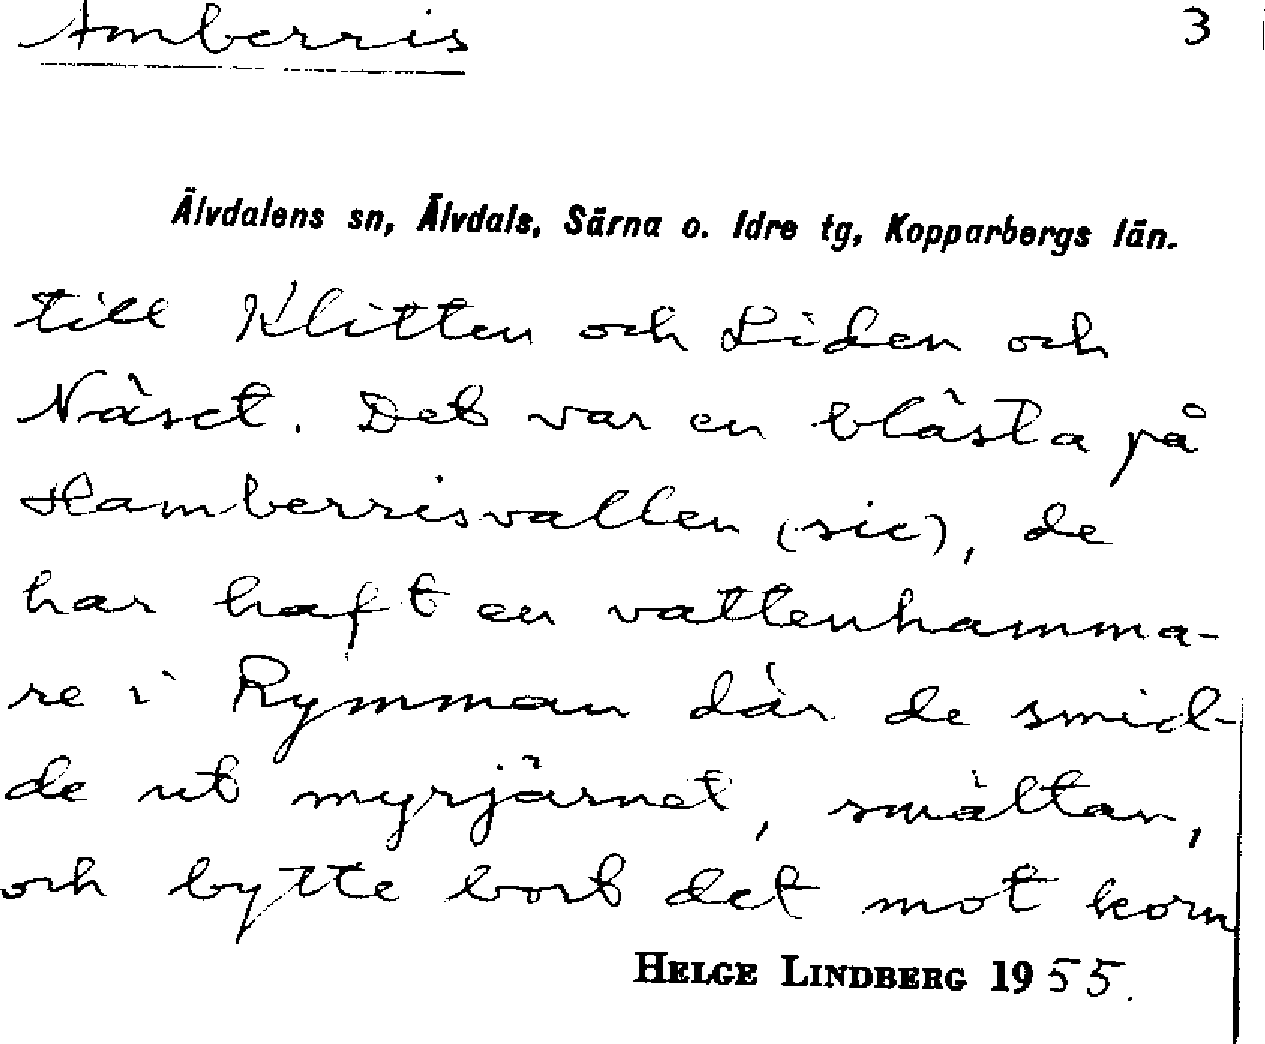 Amberris 3
Älvdalens sn, Älvdals, Särna o. Idre tg, Kopparbergs län.
till Klitten och Liden och
Näset. Det var en blästa på
Hamberrisvallen (sic), de
har haft en vattenhamma-
re i Rymman där de smid-
de ut myrjärnet, smältan,
och bytte bort det mot korn
HELGE LINDBERG 1955.